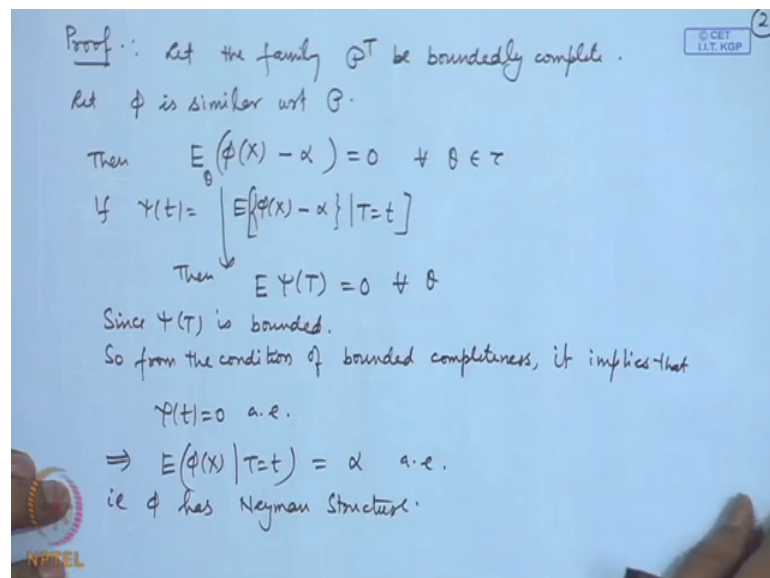 2
© CET
I.I.T. KGP
Proof : Let the family 𝒫^T be boundedly complete.
Let φ is similar wrt 𝒫.
Then E_θ (φ(X) - α) = 0 ∀ θ ∈ τ
If ψ(t) = E[{φ(X) - α} | T=t]
Then E ψ(T) = 0 ∀ θ
Since ψ(T) is bounded.
So from the condition of bounded completeness, it implies that
ψ(t) = 0 a.e.
⇒ E(φ(X) | T=t) = α a.e.
ie φ has Neyman Structure.
NPTEL